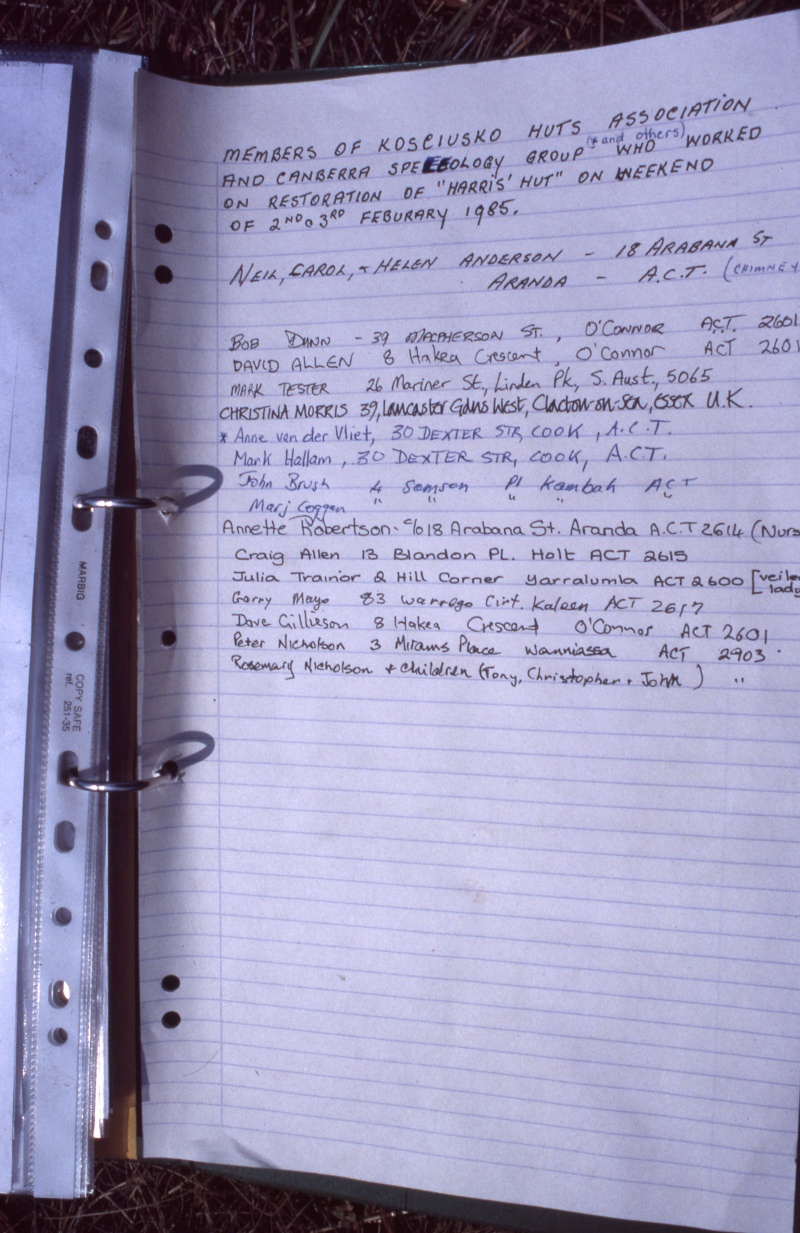 MEMBERS OF KOSCIUSKO HUTS ASSOCIATION
AND CANBERRA SPEEEOLOGY GROUP (* and others) WHO WORKED
ON RESTORATION OF "HARRIS' HUT" ON WEEKEND
OF 2ND o 3RD FEBURARY 1985.
NEIL, CAROL, + HELEN ANDERSON - 18 ARABANA ST
ARANDA - A.C.T. (CHIMNEY
BOB DUNN - 39 MACPHERSON ST., O'CONNOR ACT. 2601
DAVID ALLEN 8 Hakea Crescent, O'Connor ACT 2601
MARK TESTER 26 Mariner St., Linden Pk, S. Aust., 5065
CHRISTINA MORRIS 39, Lancaster Gdns West, Clacton-on-Sea, Essex U.K.
* Anne van der Vliet, 30 DEXTER STR, COOK, A.C.T.
Mark Hallam, 30 DEXTER STR, COOK, A.C.T.
John Brush 4 Samson Pl Kambah ACT
Marj Coggan " " " " "
Annette Robertson. c/o 18 Arabana St. Aranda A.C.T 2614 (Nurs
Craig Allen 13 Blandon PL. Holt ACT 2615
Julia Trainor 2 Hill Corner Yarralumla ACT 2600 [veiled lady
Gerry Mayo 83 Warrego Circ. Kaleen ACT 2617
Dave Gillieson 8 Hakea Crescent O'Connor ACT 2601
Peter Nicholson 3 Mirams Place Wanniassa ACT 2903
Rosemary Nicholson + children (Tony, Christopher + John) "
MARBIG
COPY SAFE
ref. 251-35